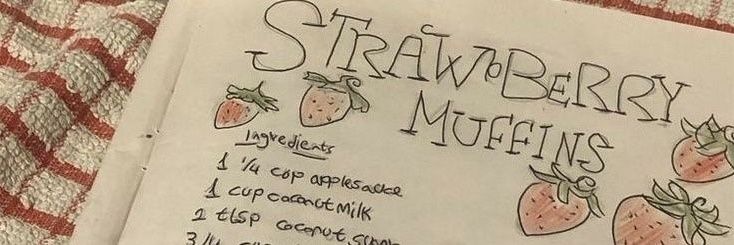 STRAWBERRY
MUFFINS
Ingredients
1 1/4 cup applesauce
1 cup coconut milk
2 tbsp coconut
3/4